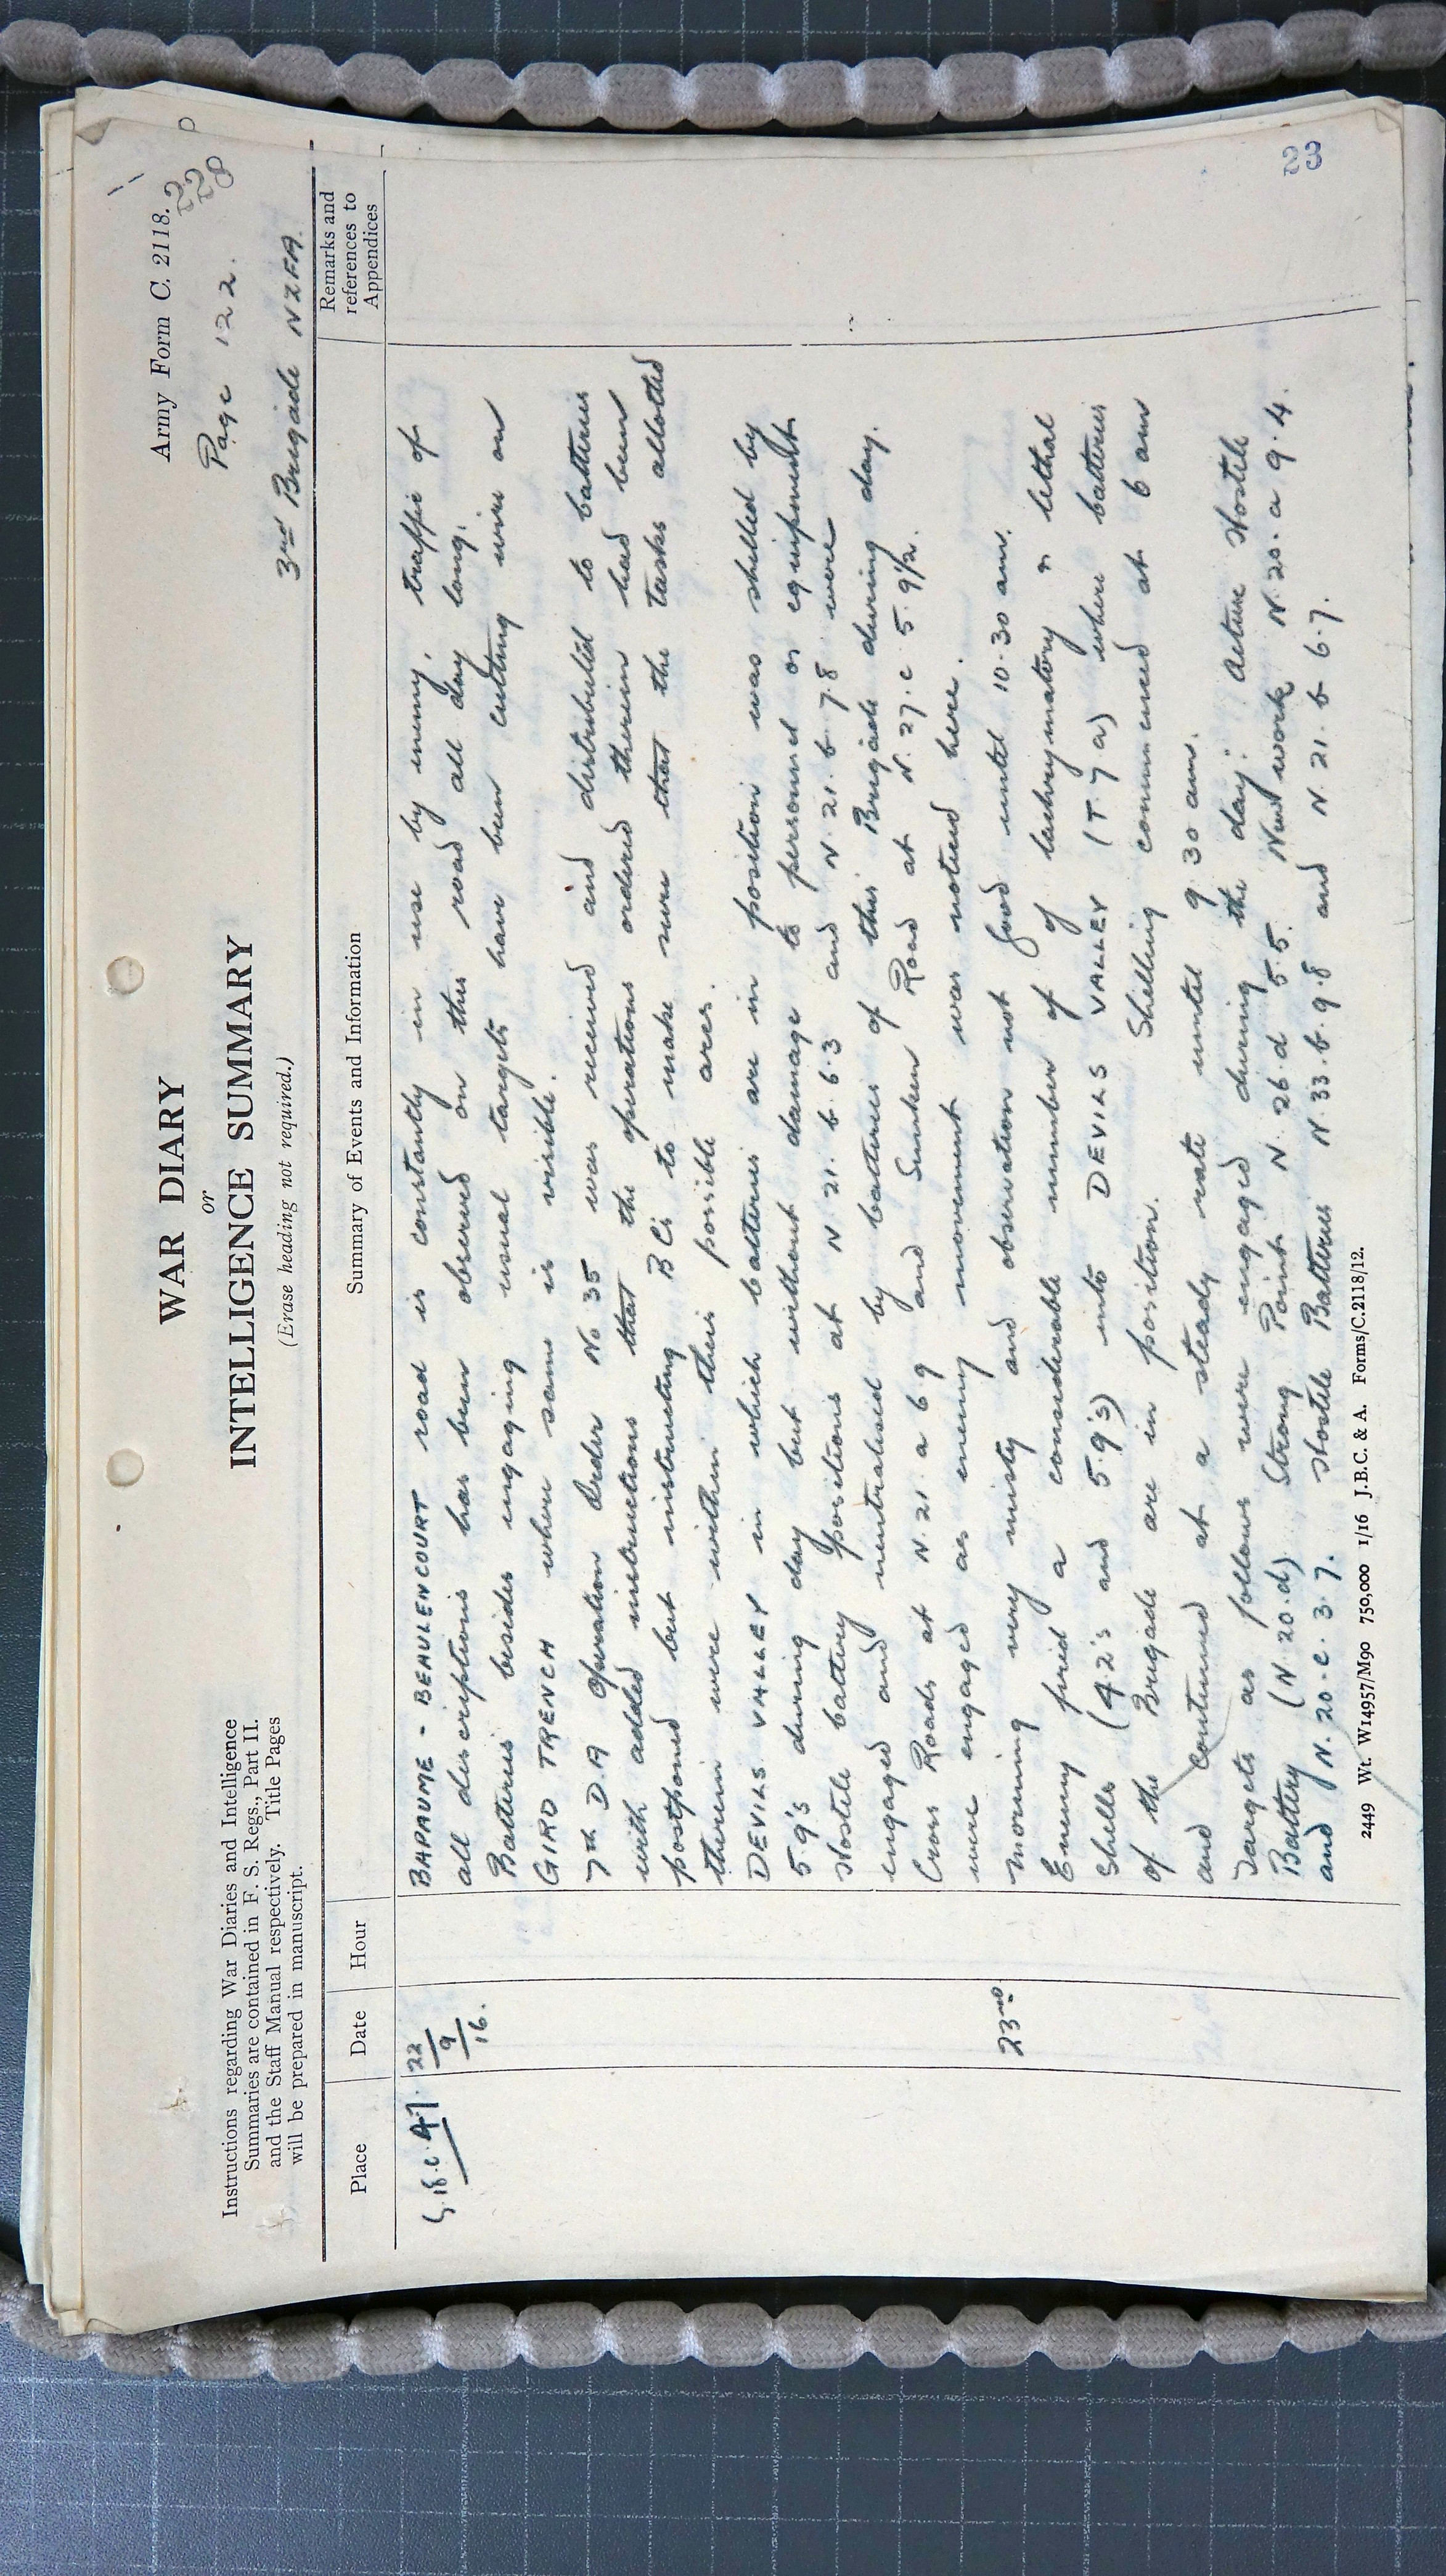 Army Form C. 2118.
Page 122.
228
3rd Brigade NZFA.
WAR DIARY
or
INTELLIGENCE SUMMARY
(Erase heading not required.)
Instructions regarding War Diaries and Intelligence
Summaries are contained in F. S. Regs., Part II.
and the Staff Manual respectively. Title Pages
will be prepared in manuscript.
Place
Date
Hour
Summary of Events and Information
Remarks and
references to
Appendices
S.18.c.4.7. 22/9/16.
BAPAUME - BEAULENCOURT road is constantly in use by enemy, traffic of
all descriptions has been observed on this road all day long.
Batteries besides engaging usual targets have been cutting wire on
GIRD TRENCH where same is visible.
7th D.A Operation Order No 35 was received and distributed to batteries
with added instructions that the operations ordered therein had been
postponed but instructing BCs to make sure that the tasks allotted
therein were within their possible arcs.
DEVILS VALLEY in which batteries are in position was shelled by
5.9's during day but without damage to personnel or equipment.
Hostile battery positions at N.21.b.6.3 and N.21.b.7.8 were
engaged and neutralised by batteries of this Brigade during day.
Cross Roads at N.21.a 6 9 and Sunken Road at N.27.c 5.9½.
were engaged as enemy movement was noticed here.
23rd
Morning very misty and observation not good until 10.30 am.
Enemy fired a considerable number of of lachrymatory & lethal
shells (4.2's and 5.9's) into DEVILS VALLEY (T.7 a) where batteries
of the Brigade are in position. Shelling commenced at 6 am
and continued at a steady rate until 9 30 am.
Targets as follows were engaged during the day: Active Hostile
Battery (N.20.d) Strong Point N.26.d 5.5. New work N.20.a 9.4.
and N.20.c.3.7. Hostile Batteries N.33.b.9.8 and N.21.b 6.7.
2449 Wt. W14957/M90 750,000 1/16 J.B.C. & A. Forms/C.2118/12.
23